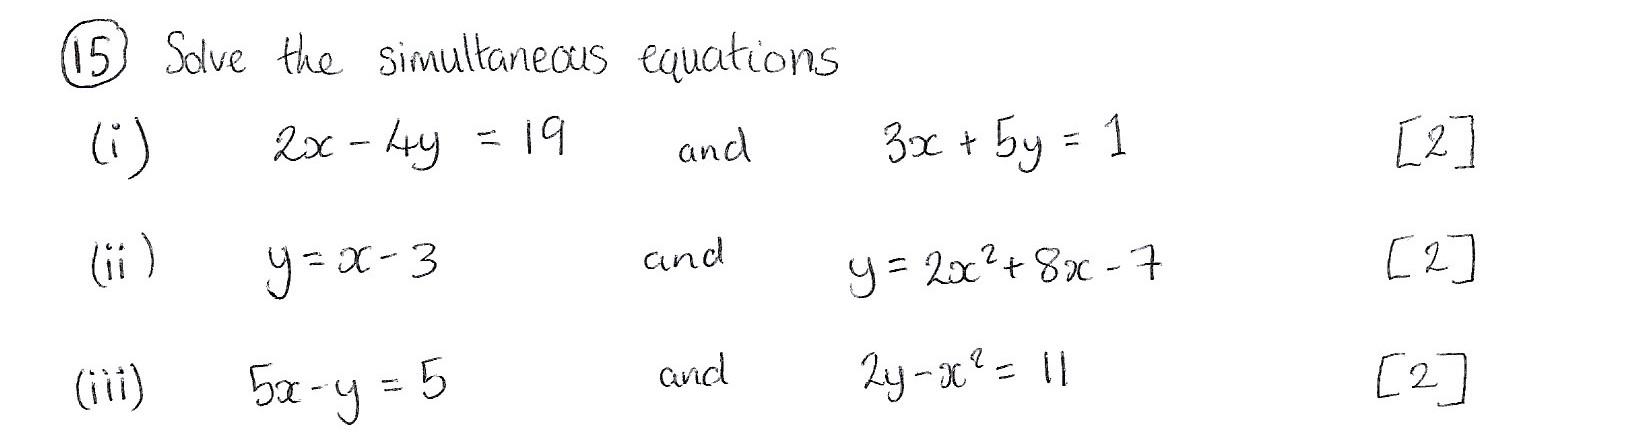 (15) Solve the simultaneous equations
(i) 2x - 4y = 19 and 3x + 5y = 1 [2]
(ii) y = x - 3 and y = 2x² + 8x - 7 [2]
(iii) 5x - y = 5 and 2y - x² = 11 [2]